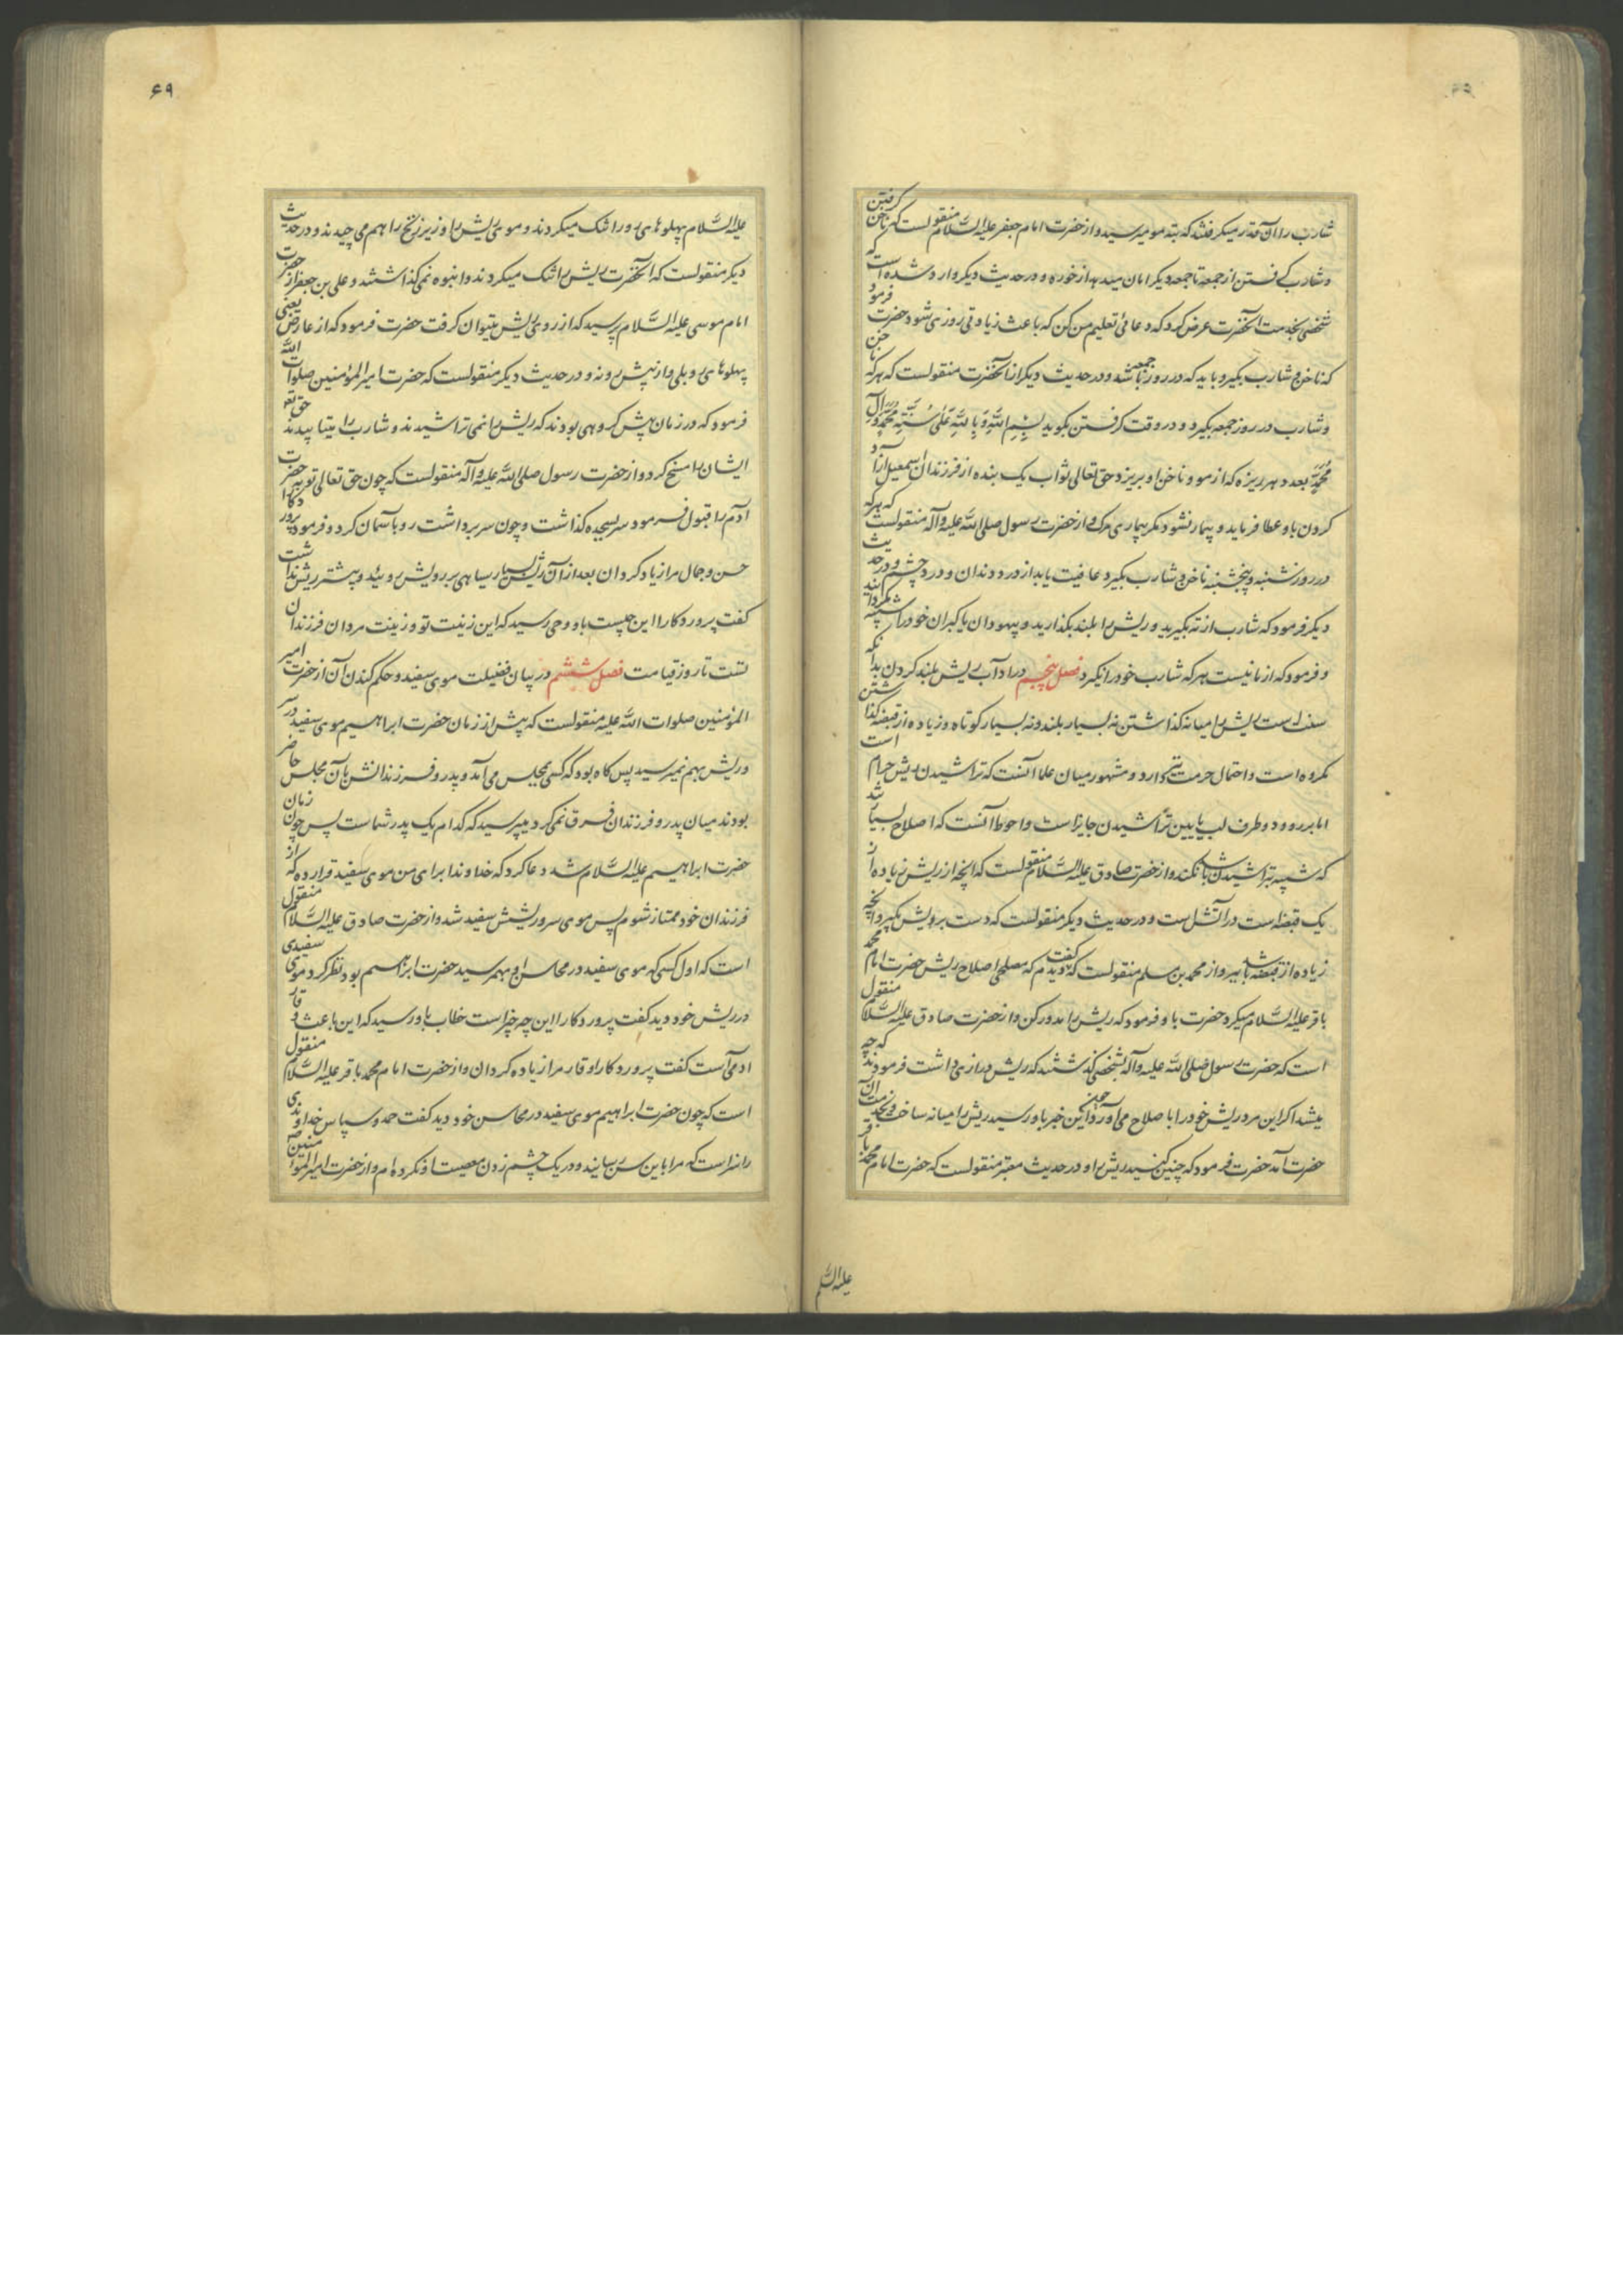 شارب را آن قدر میکرفتند که بته مو میرسید و از حضرت امام جعفر علیه السّلام منقولست که ناخن کرفتن
و شارب کرفتن از جمعه تا جمعه دیکر امان میدهد از خوره و در حدیث دیکر وارد شده است که
شخصی بخدمت آنحضرت عرض کرد که دعائی تعلیم من کن که باعث زیادتی روزی شود حضرت فرمود
که ناخن و شارب بکیر و باید که در روز جمعه باشد و در حدیث دیکر از آنحضرت منقولست که هر که ناخن
و شارب در روز جمعه بکیرد و در وقت کرفتن بکوید بِسْمِ اللَّهِ وَ بِاللَّهِ عَلىٰ سُنَّةِ مُحَمَّدٍ وَ آلِ
مُحَمَّدٍ بعدد هر ریزه که از مو و ناخن او بریزد حق تعالی ثواب یک بنده از فرزندان اسمعیل آزاد
کردن باو عطا فرماید و بیمار نشود مکر بیماری مرک و از حضرت رسول صلی الله علیه و آله منقولست که هر که
در روز شنبه و پنجشنبه ناخن و شارب بکیرد عافیت یابد از درد دندان و درد چشم و در حدیث
دیکر فرمود که شارب از ته بکیرید و ریش را بلند بکذارید و بیهودان یا کبران خود را شبیه مکردانید
و فرمود که از ما نیست هر که شارب خود را نکیرد فصل پنجم در آداب ریش بلند کردن بدانکه
سنت است ریش را میانه کذاشتن نه بسیار بلند و نه بسیار کوتاه و زیاده از قبضه کذاشتن
مکروه است و احتمال حرمت نیز دارد و مشهور میان علما آنست که تراشیدن ریش حرام است
اما بر رو و دو طرف لب پایین تراشیدن جایز است و احوط آنست که اصلاح بسیار تند
که شبیه بتراشیدن باشد نکنند و از حضرت صادق علیه السّلام منقولست که آنچه از ریش زیاده از
یک قبضه است در آتش است و در حدیث دیکر منقولست که دست بر ریش بکیر و آنچه
زیاده از قبضه باشد ببر و از محمد بن مسلم منقولست که کفت دیدم که مصلحی اصلاح ریش حضرت امام محمد
باقر علیه السّلام میکرد حضرت باو فرمود که ریش را مدور کن و از حضرت صادق علیه السّلام منقول
است که حضرت رسول صلی الله علیه و آله بشخصی کذشتند که ریش درازی داشت فرمودند که چه
میشد اکر این مرد ریش خود را باصلاح می آورد چون این خبر باو رسید ریش را میانه ساخت و بخدمت آن
حضرت آمد حضرت فرمود که چنین کنید ریش را و در حدیث معتبر منقولست که حضرت امام محمد باقر
علیه السلم
۶۹
علیه السّلام پهلوهای رو را تنک میکردند و موی ریش را و زیر زنخ را هم می چیدند و در حدیث
دیکر منقولست که آنحضرت ریش را تنک میکردند و انبوه نمی کذاشتند و علی بن جعفر از حضرت
امام موسی علیه السّلام پرسید که از روی ریش میتوان کرفت حضرت فرمود که از عارض یعنی
پهلوهای رو بلی و از پیش رو نه و در حدیث دیکر منقولست که حضرت امیر المؤمنین صلوات الله
فرمود که در زمان پیش کروهی بودند که ریش را نمی تراشیدند و شارب را میتابیدند حق تع
ایشان را مسخ کرد و از حضرت رسول صلی الله علیه و آله منقولست که چون حق تعالی توبه حضرت
آدم را قبول فرمود سر بسجده کذاشت و چون سر برداشت رو بآسمان کرد و فرمود پروردکارا
حسن و جمال مرا زیاد کردان بعد از آن ریش بسیار سیاهی بر رویش رویید و پیشتر ریش نداشت
کفت پروردکارا این چیست باو وحی رسید که این زینت تو و زینت مردان فرزندان
تست تا روز قیامت فصل ششم در بیان فضیلت موی سفید و حکم کندن آن از حضرت امیر
المؤمنین صلوات الله علیه منقولست که پیش از زمان حضرت ابراهیم موی سفید در سر
و ریش بهم نمیرسید پس کاه بود که کسی بمجلس می آمد و پدر و فرزندانش بآن مجلس حاضر
بودند میان پدر و فرزندان فرق نمی کرد میپرسید که کدام یک پدر شماست پس چون زمان
حضرت ابراهیم علیه السّلام شد دعا کرد که خداوندا برای من موی سفید قرار ده که از
فرزندان خود ممتاز شوم پس موی سر و ریشش سفید شد و از حضرت صادق علیه السّلام منقول
است که اول کسی که موی سفید در محاسن او بهم رسید حضرت ابراهیم بود نظر کرد موی سفیدی
در ریش خود دید کفت پروردکارا این چه چیز است خطاب باو رسید که این باعث وقار
آدمی است کفت پروردکارا وقار مرا زیاده کردان و از حضرت امام محمد باقر علیه السّلام منقول
است که چون حضرت ابراهیم موی سفید در محاسن خود دید کفت حمد و سپاس خداوندی
را سزاست که مرا باین سن رسانید و در یک چشم زدن معصیت او نکرده ام و از حضرت امیر المؤمنین ص